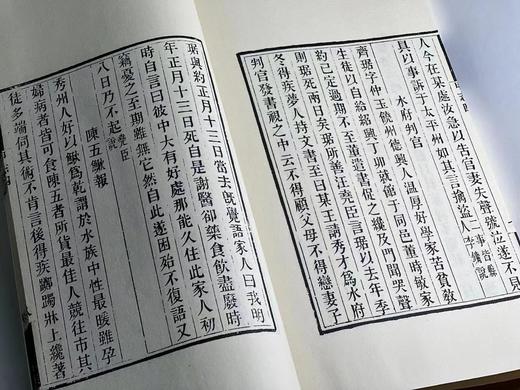 人今在某處汝急以告官妻失聲號泣遂不見
具以事訴于太平州如其言擒盜人
水府判官
齊琚字仲玉饒州德興人温厚好學家苦貧敎
生徒以自給紹興丁卯就館于同邑董時敏家
約已定過期不至董遣書促之纔及門聞哭聲
則琚死兩日矣琚所善汪堯臣言琚以去年季
冬得疾夢人持文書至曰某王請秀才爲水府
判官發書視之中云不得顧父母不得戀妻子
琚與約正月十三日當去旣覺語家人曰我明
年正月十三日死自是謝醫卻藥食飲盡廢時
時自言曰彼中大有好處那能久住此家人初
竊憂之至期雖無它然自此遂困殆不復語又
八日乃不起堯臣説
陳五鰍報
秀州人好以鰍爲乾謂於水族中性最暖雖孕
婦病者皆可食陳五者所貨最佳人競往市其
徒多端伺其術不肯言後得疾躑躅牀上纔著